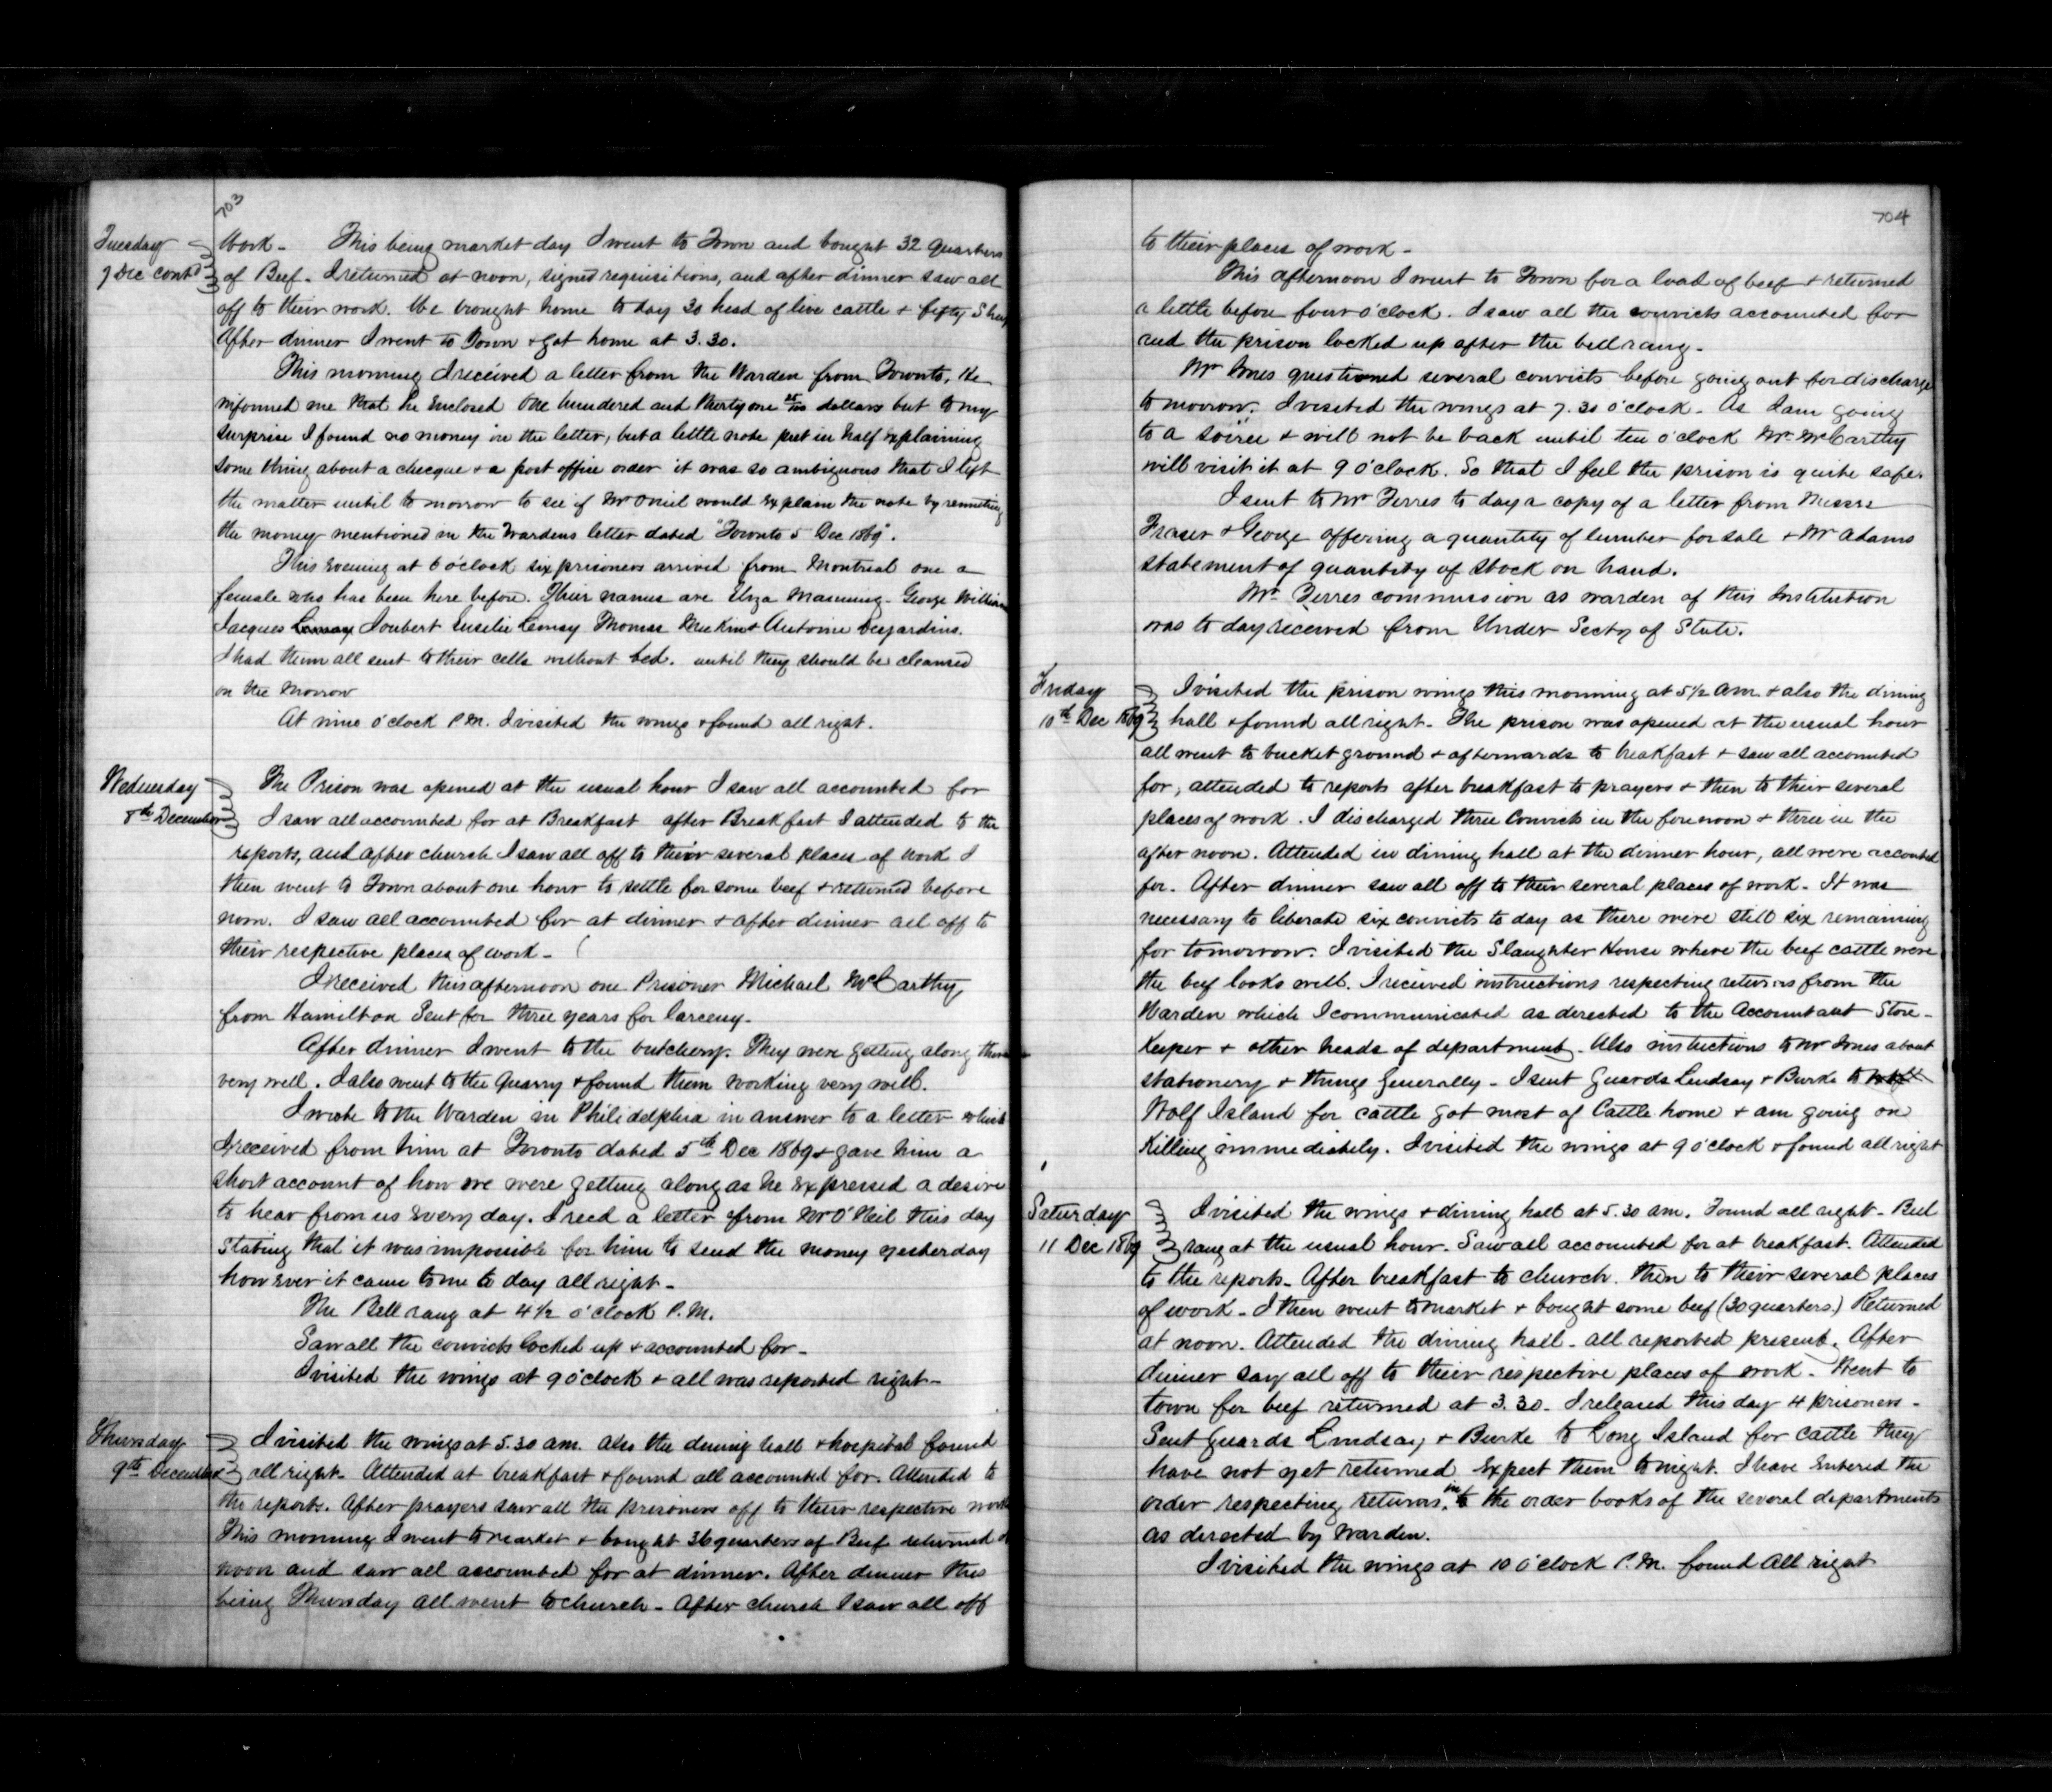 703
Tuesday
7 Dec contd
Work - This being market day I went to Town and bought 32 quarters
of Beef. I returned at noon, signed requisitions, and after dinner saw all
off to their work. We brought home to day 30 head of live cattle + fifty Sheep
After dinner I went to Town + got home at 3.30.
This morning I received a letter from the Warden from Toronto, He
informed me that he Enclosed One hundered and thirty one 25/100 dollars but to my
surprise I found no money in the letter, but a little note put in half explaining
some thing about a checque + a post office order it was so ambiguous that I left
the matter until to morrow to see if Mr Oniel would Explain the note by remitting
the money mentioned in the Wardens letter dated "Toronto 5 Dec 1869".
This Evening at 6 o'clock six prisoners arrived from Montreal one a
female who has been here before. Their names are Eliza Manning - George William
Jacques Lemay Joubert Eusebie Lemay Thomas + Antoine Desjardins.
I had them all sent to their cells without bed. until they should be cleansed
on the Morrow
At nine o'clock P.M. I visited the wings + found all right.
Wednesday
8th December
The Prison was opened at the usual hour I saw all accounted for
I saw all accounted for at Breakfast after Breakfast I attended to the
reports, and after church I saw all off to their several places of work I
then went to Town about one hour to settle for some beef + returned before
noon. I saw all accounted for at dinner + after dinner all off to
their respective places of work -
I received this afternoon one Prisoner Michael McCarthy,
from Hamilton Sent for three years for larceny.
After dinner I went to the butchery. They were getting along there
very well. I also went to the Quarry + found them working very well.
I wrote to the Warden in Philidelphia in answer to a letter which
I received from him at Toronto dated 5th Dec 1869 + gave him a
short account of how we were getting along as he Expressed a desire
to hear from us Every day. I recd a letter from Mr O'Neil this day
Stating that it was impossible for him to send the money yesterday
how Ever it came to me to day all right -
The Bell rang at 4 1/2 o'clock P.M.
Saw all the convicts locked up + accounted for -
I visited the wings at 9 o'clock + all was reported right -
Thursday
9th December
I visited the wings at 5.30 am. also the dining hall + hospital found
all right. Attended at breakfast + found all accounted for. Attended to
the reports. After prayers saw all the prisoners off to their respective work
This morning I went to market + bought 36 quarters of Beef returned at
noon and saw all accounted for at dinner. After dinner this
being Thursday all went to church - After church I saw all off
704
to their places of work -
This afternoon I went to Town for a load of beef + returned
a little before four o'clock. I saw all the convicts accounted for
and the prison locked up after the bell rang -
Mr Jones questioned several convicts before going out for discharge
to morrow. I visited the wings at 7.30 o'clock - As I am going
to a soiree + will not be back until ten o'clock Mr McCarthy
will visit it at 9 o'clock. So that I feel the prison is quite safe.
I sent to Mr Ferres to day a copy of a letter from Messrs
Fraser + George offering a quantity of lumber for sale + Mr Adams
statement of quantity of stock on hand.
Mr. Ferres commission as warden of this Institution
was to day received from Under Secty of State.
Friday
10th Dec 1869
I visited the prison wings this morning at 5 1/2 am + also the dining
hall + found all right - The prison was opened at the usual hour
all went to bucket ground + afterwards to breakfast + saw all accounted
for, attended to reports after breakfast to prayers + then to their several
places of work. I discharged three convicts in the forenoon + three in the
after noon. Attended in dining hall at the dinner hour, all were accounted
for. After dinner saw all off to their several places of work - It was
necessary to liberate six convicts to day as there were still six remaining
for tomorrow. I visited the Slaughter House where the beef cattle were
the beef looks well. I received instructions respecting returns from the
Warden which I communicated as directed to the Accountant Store -
Keeper + other heads of department - Also instructions to Mr Jones about
stationery + things generally - I sent Guards Lindsay + Burke to
Wolf Island for cattle got most of Cattle home + am going on
Killing immediately. I visited the wings at 9 o'clock + found all right
Saturday
11 Dec 1869
I visited the wings + dining hall at 5.30 am. Found all right - Bell
rang at the usual hour. Saw all accounted for at breakfast. Attended
to the reports - After breakfast to church. then to their several places
of work - I then went to market + bought some beef (30 quarters.) Returned
at noon. Attended the dining hall - all reported present. After
dinner say all off to their respective places of work - Went to
town for beef returned at 3.30 - I released this day 4 prisoners -
Sent Guards Lindsay + Burke to Long Island for cattle they
have not yet returned Expect them tonight. I have Entered the
order respecting returns in the order books of the several departments
as directed by Warden.
I visited the wings at 10 o'clock P.M. found all right